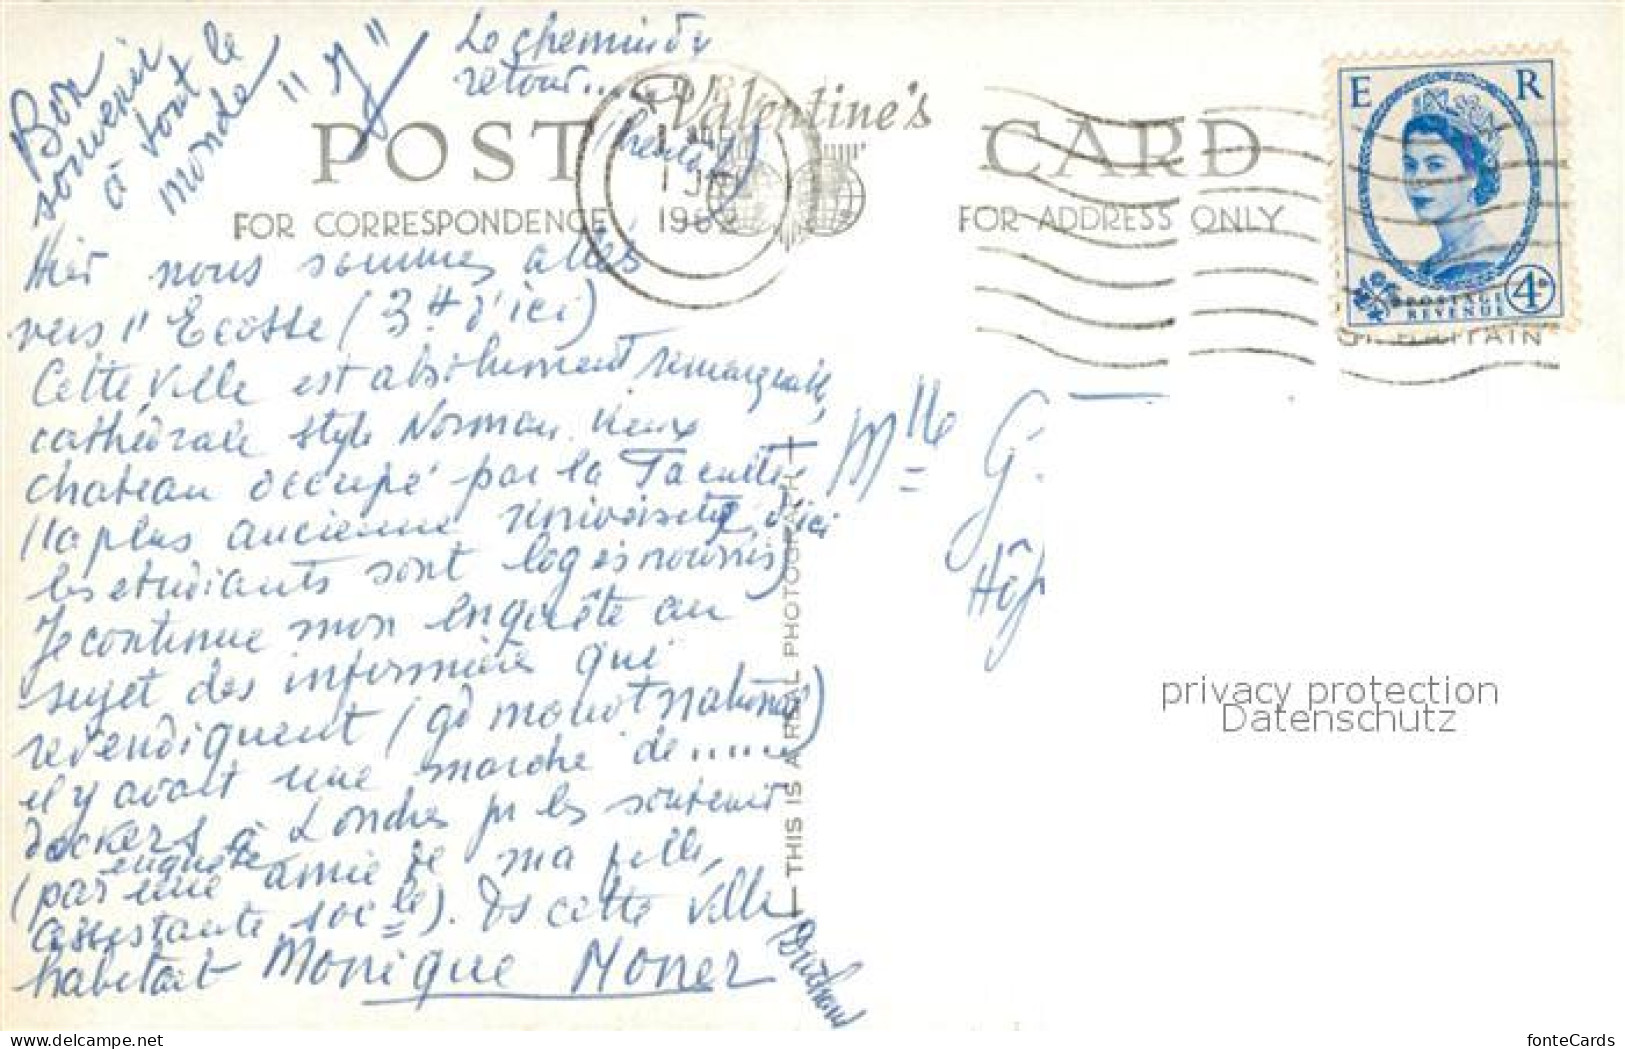 Bon
souvenir
à tout le
monde
"
Le chemin du
retour....
POST CARD
Valentine's
FOR CORRESPONDENCE
FOR ADDRESS ONLY
1962
E R
POSTAGE
REVENUE
4D
GT. BRITAIN
Hier nous sommes allés
vers l'Ecosse (3 H d'ici)
Cette ville est absolument remarquable,
cathédrale style Norman. Vieux
chateau occupé par la Faculté
(la plus ancienne université d'ici
les étudiants sont logés nourris)
Je continue mon enquête au
sujet des infirmières qui
revendiquent (gd mouvt national)
il y avait une marche de......
dockers à Londres pr les soutenir
enquête
(par une amie de ma fille,
assistante socle). Ds cette ville
habitait Monique
Mlle G.
Hôp
THIS IS A REAL PHOTOGRAPH
privacy protection
Datenschutz
www.delcampe.net
fonteCards